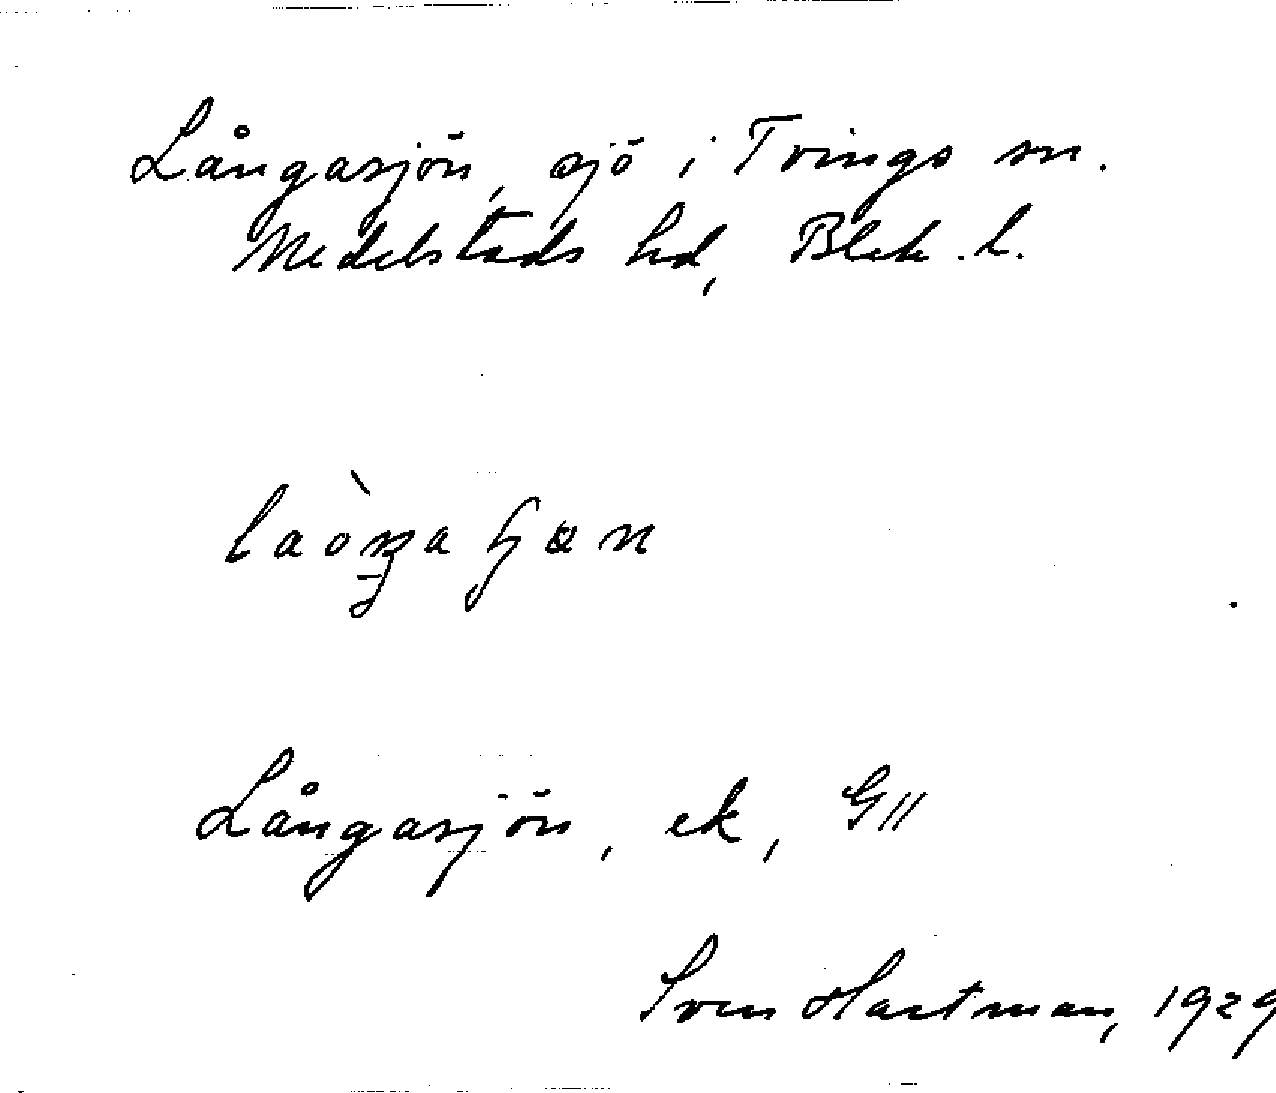 Långasjön, sjö i Tvings sn.
Medelstads hd, Blek. l.
laòŋa ɧɷn
Långasjön, ek, G11
Sven Hartman, 1929